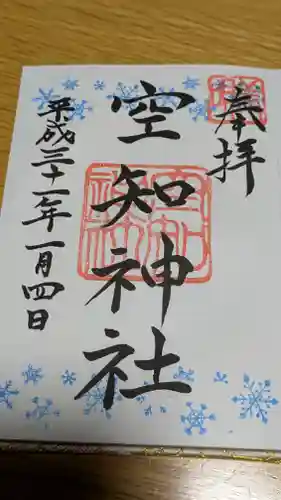 奉拝
空知神社
平成三十一年一月四日